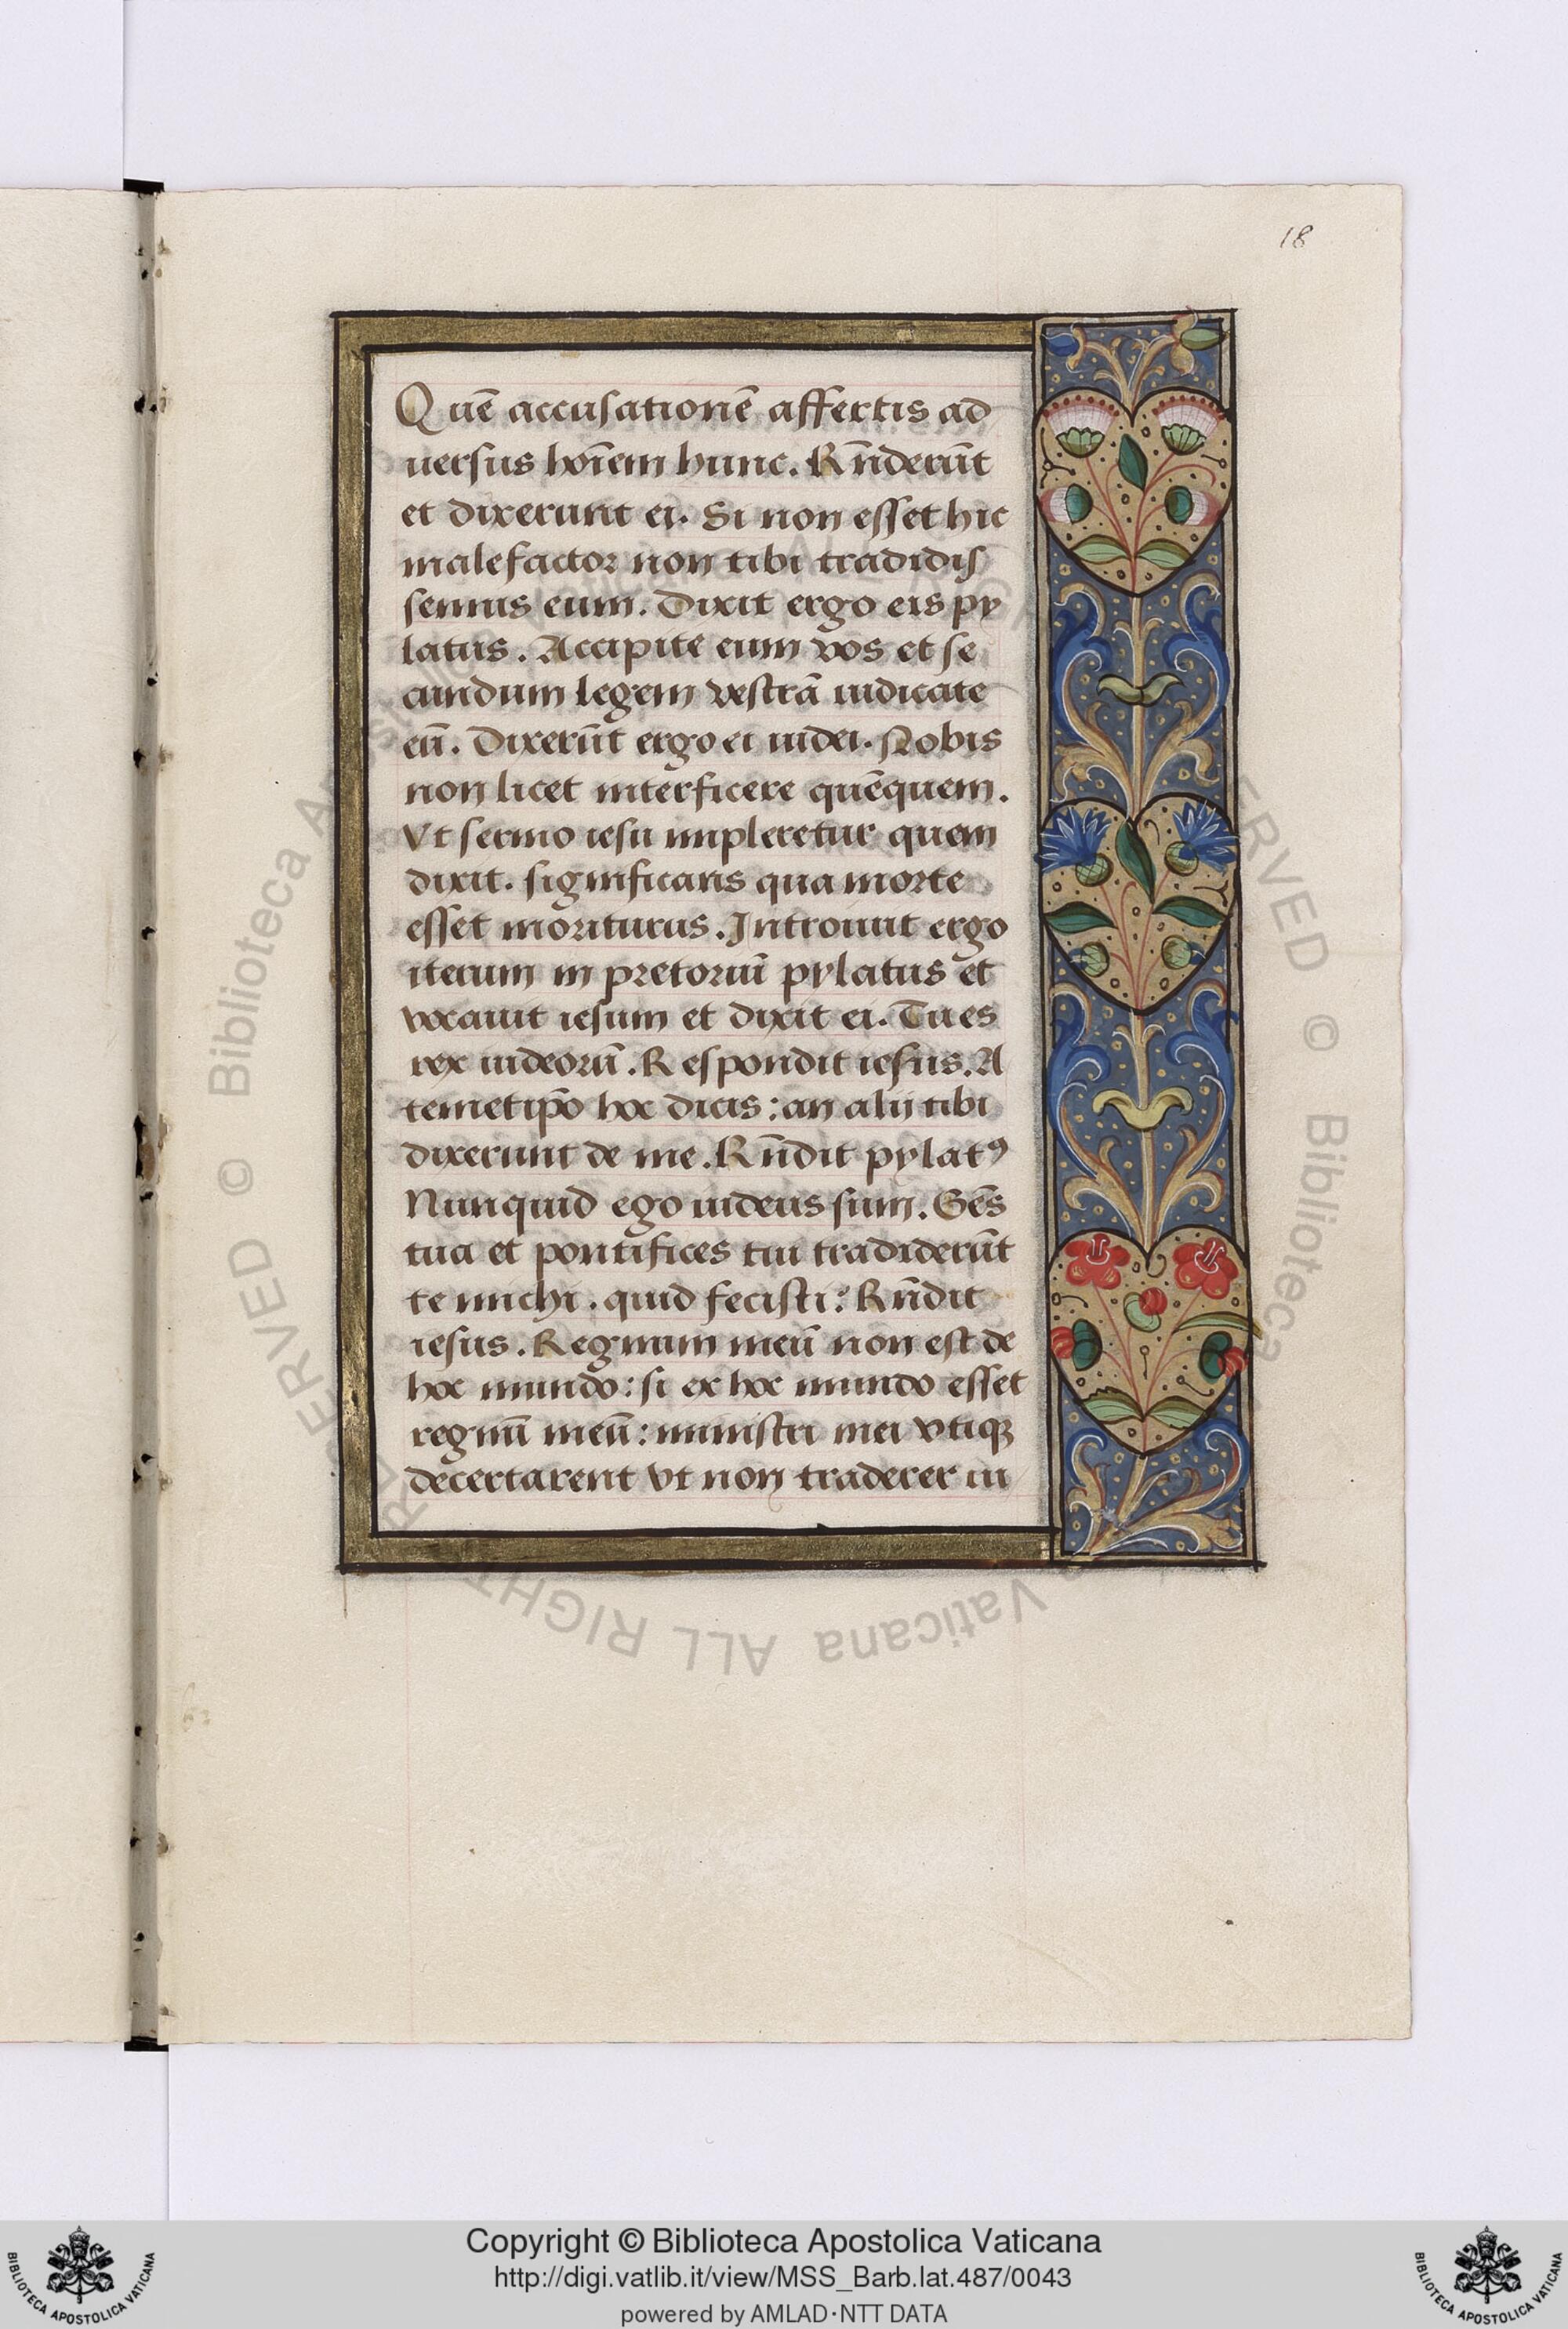 18
Quē accusationē affertis ad
uersus hoīem hunc. Rn̄derūt
et dixerunt ei. Si non esset hic
malefactor non tibi tradidis
semus eum. Dixit ergo eis py
latus. Accipite eum vos et se
cundum legem vestrā iudicate
eū. Dixerūt ergo ei iudei. Nobis
non licet interficere quēquem.
Vt sermo iesu impleretur quem
dixit. significans qua morte
esset moriturus. Introiuit ergo
iterum in pretoriū pylatus et
vocauit iesum et dixit ei. Tu es
rex iudeorū. Respondit iesus. A
temetip̄o hoc dicis: an alij tibi
dixerunt de me. Rn̄dit pylatꝰ
Nunquid ego iudeus sum. Gēs
tua et pontifices tui tradiderūt
te michi. quid fecisti? Rn̄dit
iesus. Regnum meū non est de
hoc mundo: si ex hoc mundo esset
regnū meū: ministri mei vtiqꝫ
decertarent vt non traderer iu
Copyright © Biblioteca Apostolica Vaticana
http://digi.vatlib.it/view/MSS_Barb.lat.487/0043
powered by AMLAD·NTT DATA
BIBLIOTECA APOSTOLICA VATICANA
BIBLIOTECA APOSTOLICA VATICANA